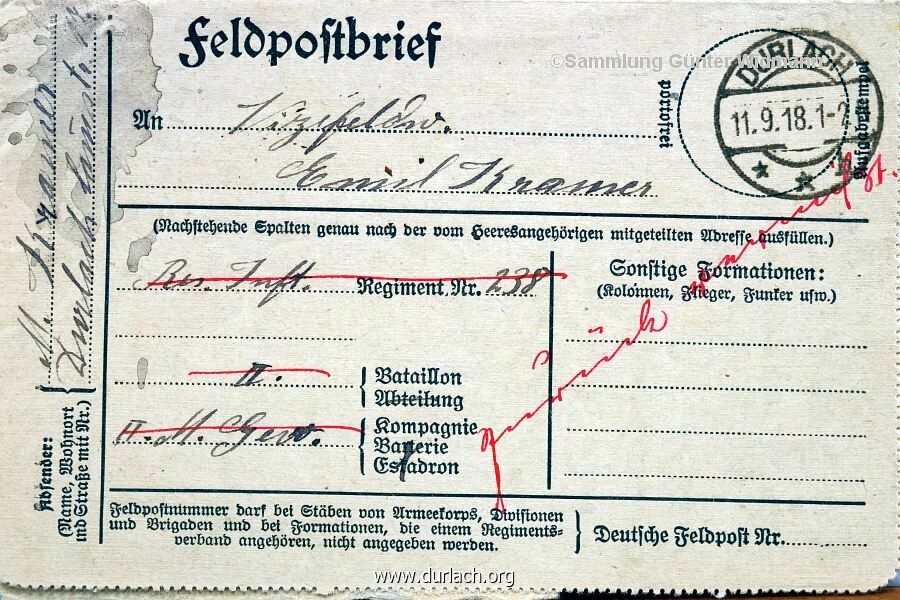 Feldpostbrief
©Sammlung Günter Widmann
DURLACH
11.9.18.1-2
portofrei
Aufgabestempel
An Vizefeldw.
Emil Kramer
(Nachstehende Spalten genau nach der vom Heeresangehörigen mitgeteilten Adresse ausfüllen.)
Res. Inft. Regiment Nr. 238
II. Bataillon
Abteilung
II. M. Gew. Kompagnie
Batterie
Eskadron
Sonstige Formationen:
(Kolonnen, Flieger, Funker usw.)
Zurück
Feldpostnummer darf bei Stäben von Armeekorps, Divisionen
und Brigaden und bei Formationen, die einem Regiments-
verband angehören, nicht angegeben werden.
Deutsche Feldpost Nr.
Absender:
(Name, Wohnort
und Straße mit Nr.)
M. Kramer
Durlach
www.durlach.org